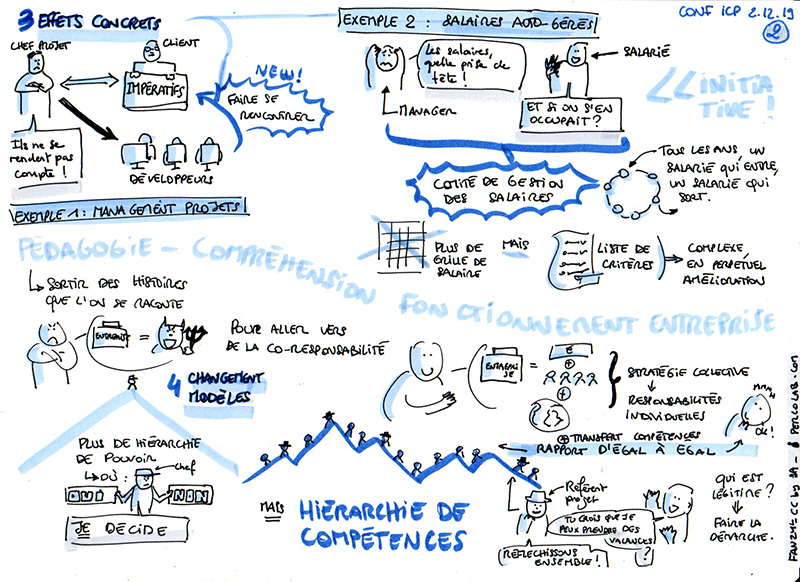 3 EFFETS CONCRETS
CHEF PROJET
CLIENT
IMPÉRATIFS
NEW!
FAIRE SE
RENCONTRER
Ils ne se
rendent pas
compte !
DÉVELOPPEURS
EXEMPLE 1 : MANAGEMENT PROJETS
EXEMPLE 2 : SALAIRES AUTO-GÉRÉS
CONF ICP 2.12.19
2
Les salaires,
quelle prise de
tête !
MANAGER
SALARIÉ
ET SI ON S'EN
OCCUPAIT ?
INITIA
TIVE !
COMITÉ DE GESTION
DES SALAIRES
TOUS LES ANS, UN
SALARIÉ QUI ENTRE,
UN SALARIÉ QUI
SORT.
PLUS DE
GRILLE DE
SALAIRE
MAIS
LISTE DE
CRITÈRES
COMPLEXE,
EN PERPÉTUEL
AMÉLIORATION
PÉDAGOGIE - COMPRÉHENSION FONCTIONNEMENT ENTREPRISE
SORTIR DES HISTOIRES
QUE L'ON SE RACONTE
=
POUR ALLER VERS
DE LA CO-RESPONSABILITÉ
ENTREPRI
SE
=
€
+
+
STRATÉGIE COLLECTIVE
RESPONSABILITÉS
INDIVIDUELLES
+ TRANSFERT COMPÉTENCES
RAPPORT D'ÉGAL À ÉGAL
OK!
4 CHANGEMENT
MODÈLES
PLUS DE HIÉRARCHIE
DE POUVOIR
OÙ :
chef
OUI
NON
JE DÉCIDE
MAIS
HIÉRARCHIE DE
COMPÉTENCES
Référent
projet
TU CROIS QUE JE
PEUX PRENDRE DES
VACANCES
?
RÉFLÉCHISSONS
ENSEMBLE !
QUI EST
LÉGITIME ?
FAIRE LA
DÉMARCHE.
FANZYS - CC by SA - PERCOLAB.COM